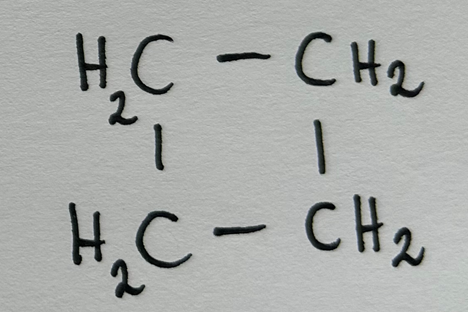 H₂C — CH₂
| |
H₂C — CH₂